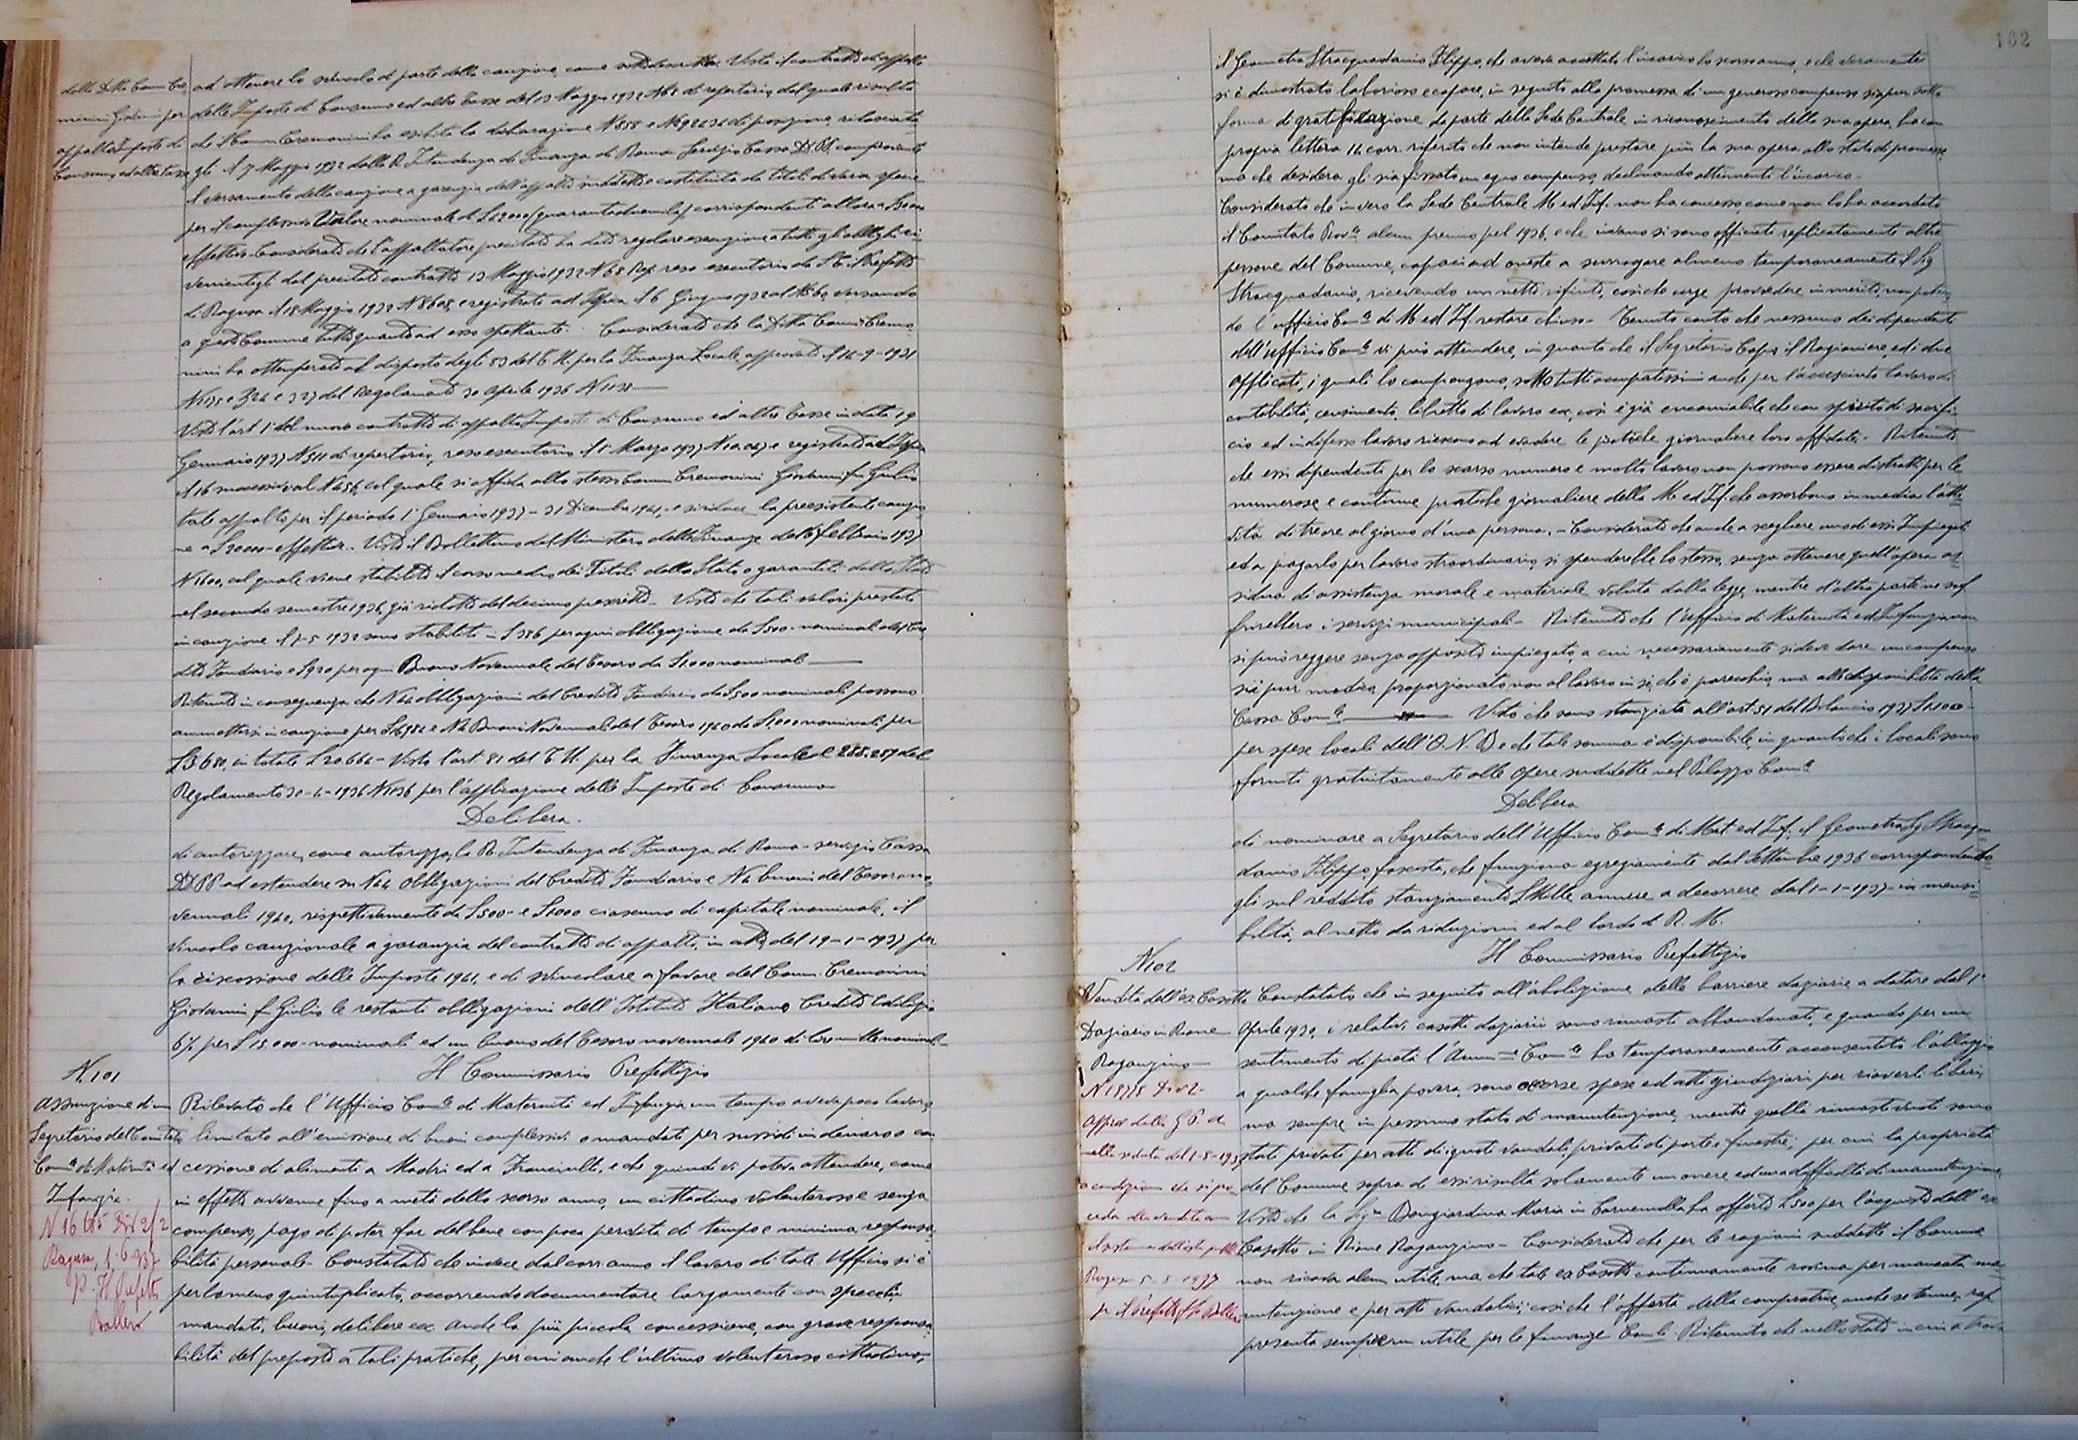 della Ditta Comm. Cre
monini Giovanni per
appalto Imposte di
Consumo ed altre tasse
ad ottenere lo svincolo di parte della cauzione, come Visto il contratto di appalto
delle Imposte di Consumo ed altre Tasse del 13 Maggio 1932 N. 68 di repertorio, dal quale risulta
che il Comm. Cremonini ha esibito la dichiarazione N. 855 e di posizione, rilasciata
gli il 7 Maggio 1932 dalla R. Intendenza di Finanza di Roma Servizio Cassa DD. PP. comprovante
il versamento della cauzione a garanzia dell'appalto suddetto e costituita da titoli di varia specie
per il complessivo Valore nominale di L. 42000 (quarantaduemila) corrispondenti allora a
effettive. Considerato che l'appaltatore precitato ha dato regolare esecuzione a tutti gli obblighi ri
venientigli dal precitato contratto 13 Maggio 1932 N. 68 Rep. reso esecutorio da S. E. il Prefetto
di Ragusa il 18 Maggio 1932 N. 8605, e registrato ad Ispica il 6 Giugno 1932 al N. 560, versando
a questo Comune tutto quanto ad esso spettante. Considerato che la Ditta Comm. Cremo
nini ha ottemperato al disposto degli 83 del T. U. per la Finanza Locale approvato il 14-9-1931
N. 1175 e 326 e 327 del Regolamento 30 Aprile 1936 N. 1138
Visto l'art. 1 del nuovo contratto di appalto Imposte di Consumo ed altre Tasse in data 19
Gennaio 1937 N. 511 di repertorio, reso esecutorio il 1° Marzo 1937 e registrato ad Ispica
il 16 successivo al N. 456, col quale si affida allo stesso Comm. Cremonini Giovanni fu Giulio
tale appalto per il periodo 1° Gennaio 1937 - 31 Dicembre 1941, e si riduce la preesistente cauzio
ne a L. 20000 effettive. Visto il Bollettino del Ministero delle Finanze del 16 febbraio 1937
N. 1600, col quale viene stabilito il corso medio dei Titoli dello Stato o garantiti dallo Stato
nel secondo semestre 1936, già ridotto del decimo prescritto. Visto che tali valori prestati
in cauzione il 7-5-1932 sono stabiliti in L. 386 per ogni obbligazione da L. 500 nominali del Cre
dito Fondiario e L. 920 per ogni Buono Novennale del Tesoro da L. 1000 nominali
Ritenuto in conseguenza che N. 44 obbligazioni del Credito Fondiario da L. 500 nominali possono
ammettersi in cauzione per L. 16984 e N. 4 Buoni Novennali del Tesoro 1940 da L. 1000 nominali per
L. 3680, in totale L. 20664. Visto l'art. 81 del T. U. per la Finanza Locale e 255.257 del
Regolamento 30-4-1936 N. 1138 per l'applicazione delle Imposte di Consumo
Delibera.
di autorizzare, come autorizza, la R. Intendenza di Finanza di Roma - servizio Cassa
DD. PP. ad estendere su N. 44 obbligazioni del Credito Fondiario e N. 4 buoni del Tesoro no
vennali 1940, rispettivamente da L. 500 e L. 1000 ciascuno di capitale nominale, il
vincolo cauzionale a garanzia del contratto di appalto, in atto, del 19-1-1937 per
la riscossione delle Imposte 1941, e di svincolare a favore del Comm. Cremonini
Giovanni fu Giulio le restanti obbligazioni dell'Istituto Italiano Credito Edilizio
6% per L. 15.000 nominali ed un buono del Tesoro novennale 1940 di lire mille nominali.
N. 101
Assunzione di un
Segretario del Comitato
Com.le di Maternità ed
Infanzia.
N. 16465 Div 2/2
Ragusa, 1-6-937
p. Il Prefetto
Ballero
Il Commissario Prefettizio
Rilevato che l'Ufficio Com.le di Maternità ed Infanzia un tempo aveva poco lavoro
limitato all'emissione di buoni complessivi o mandati per sussidi in denaro o con
cessione di alimenti a Madri ed a Fanciulli, e che quindi vi poteva attendere, come
in effetti avvenne fino a metà dello scorso anno, un cittadino volenteroso e senza
compenso, pago di poter far del bene con poca perdita di tempo e minima responsa
bilità personale. Constatato che invece dal corr. anno il lavoro di tale Ufficio si è
per lo meno quintuplicato, occorrendo documentare largamente con specchi,
mandati, buoni, delibere ecc. anche la più piccola concessione, con grave responsa
bilità del preposto a tali pratiche, per cui anche l'ultimo volenteroso cittadino,
102
il Geometra Stracquadanio Filippo, che aveva accettato l'incarico lo scorso anno, e che veramente
si è dimostrato laborioso e capace, in seguito alla promessa di un generoso compenso sia pur sotto
forma di gratificazione da parte della Sede Centrale in riconoscimento della sua opera, ha con
propria lettera 14 corr. riferito che non intende prestare più la sua opera allo stato di promesse,
ma che desidera gli sia fissato un equo compenso, declinando altrimenti l'incarico.
Considerato che invero la Sede Centrale M. ed Inf. non ha concesso, come non lo ha accordato
il Comitato Prov.le alcun premio pel 1936, e che invano si sono officiate replicatamente altre
persone del Comune, capaci ad oneste a surrogare almeno temporaneamente il Sig.
Stracquadanio, ricevendo un netto rifiuto, cosicché urge provvedere in merito, non poten
do l'ufficio Com.le di M. ed Inf. restare chiuso. Tenuto conto che nessuno dei dipendenti
dell'Ufficio Com.le vi può attendere, in quanto che il Segretario Capo, il Ragioniere, ed i due
Applicati, i quali lo compongono, sono tutti occupatissimi anche per l'accresciuto lavoro di
contabilità, censimento, libretto di lavoro ecc, così è già encomiabile che con spirito di sacrifi
cio ed indefesso lavoro riescono ad evadere le pratiche giornaliere loro affidate. Ritenuto
che essi dipendenti per lo scarso numero e molto lavoro non possono essere distratti per le
numerose e continue pratiche giornaliere della M. ed Inf. che assorbono in media l'atti
vità di tre ore al giorno d'una persona. Considerato che anche a scegliere uno di essi Impiegati
ed a pagarlo per lavoro straordinario, si spenderebbe lo stesso, senza ottenere quell'opera as
sidua di assistenza morale e materiale voluta dalla legge, mentre d'altra parte ne sof
frirebbero i servizi municipali. Ritenuto che l'Ufficio di Maternità ed Infanzia non
si può reggere senza apposito impiegato, a cui necessariamente si deve dare un compenso
sia pur modico, proporzionato non al lavoro in sé, che è parecchio, ma alla disponibilità della
Cassa Com.le Visto che sono stanziate all'art. 51 del Bilancio 1937 L. 1100
per spese locali dell'O. N. B. e che tale somma è disponibile in quanto che i locali sono
forniti gratuitamente alle Opere suddette nel Palazzo Com.le
Delibera
di nominare a Segretario dell'Ufficio Com.le di Mat. ed Inf. il Geometra Sig. Stracqua
danio Filippo, fascista, che funziona egregiamente dal Settembre 1936 corrispondendo
gli sul reddito stanziamento L. Mille annue, a decorrere dal 1-1-1937 in mensi
bilità, al netto da riduzioni ed al lordo di R. M.
N. 102
Vendita dell'ex Casotto
Daziario in Rione
Raganzino
N. 18715 Div 2
Approv. dalla G. P. A.
nella seduta del 1-5-1937
a condizione che si pro
ceda alla vendita con
il sistema dell'asta pubb.
Ragusa 5-5-1937
p. il Prefetto f.to Ballero
Il Commissario Prefettizio
Constatato che in seguito all'abolizione delle barriere daziarie a datare dal 1°
Aprile 1930, i relativi casotti daziarii sono rimasti abbandonati, e quando per un
sentimento di pietà l'Amm.ne Com.le ha temporaneamente acconsentito l'alloggio
a qualche famiglia povera, sono occorse spese ed atti giudiziari per riaverli liberi,
ma sempre in pessimo stato di manutenzione, mentre quelli rimasti vuoti sono
stati privati per atti di ignoti vandali privati di porte e finestre; per cui la proprietà
del Comune sopra di essi risulta solamente un onere ed una difficoltà di manutenzione.
Visto che la Sig.ra Bongiardina Maria in Carnemolla ha offerto L. 500 per l'acquisto dell'ex
Casotto in Rione Raganzino. Considerato che per le ragioni suddette il Comune
non ricava alcun utile, ma che tale ex Casotto continuamente rovina per mancata ma
nutenzione e per atti vandalici; così che l'offerta della compratrice, anche se tenue, rap
presenta sempre un utile per le finanze Com.li. Ritenuto che nello stato in cui a trova